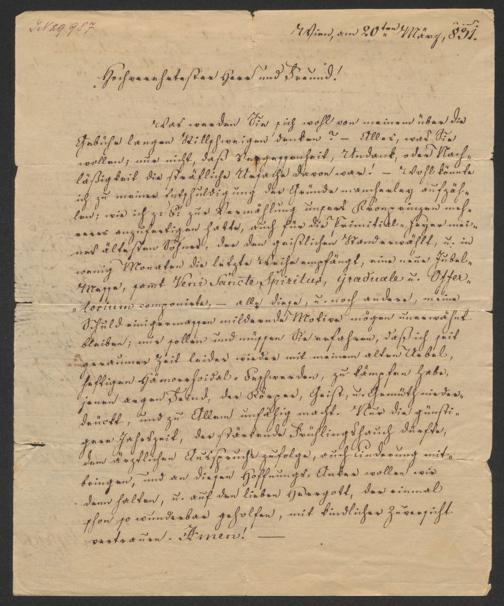 Wien, am 20ten März, 831.
Hochverehrtester Herr und Freund!
Was werden Sie sich wohl von meinem über die
Gebühr langen Stillschweigen denken? – Alles, was Sie
wollen; nur nicht, daß Vergessenheit, Undank, oder Nach-
läßigkeit die sträfliche Ursache davon war! – Wohl könnte
ich zu meiner Entschuldigung der Gründe mancherley aufzäh-
len; wie ich z: B: zur Vermählung unsers Kronprinzen meh-
reres anzufertigen hatte, auch für die Primitial-Feyer mei-
nes ältesten Sohnes, der den geistlichen Stand erwählt, u. in
wenig Monaten die letzte Weihe empfängt, eine neue Jubel-
Messe, samt Veni Sancte Spiritus, Graduale u. Offer-
torium componirte, – alle diese, u. noch andere, meine
Schuld einigermassen mildernde Motive mögen unerwähnt
bleiben; nur sollen und müssen Sie erfahren, daß ich seit
geraumer Zeit leider wieder mit meinem alten Uebel,
heftigen Hämorrhoidal-Beschwerden, zu kämpfen habe,
jenem argen Feind, der Körper, Geist, u. Gemüth nieder-
drückt, und zu Allem unfähig macht. Nur die günsti-
gere Jahreszeit, der stärkende Frühlingshauch dürfte,
dem ärztlichen Ausspruche zufolge, auch Linderung mit-
bringen, und an diesen Hoffnungs-Anker wollen wir
denn halten, u. auf den lieben Herrgott, der einmal
schon so wunderbar geholfen, mit kindlicher Zuversicht
vertrauen. Amen! –